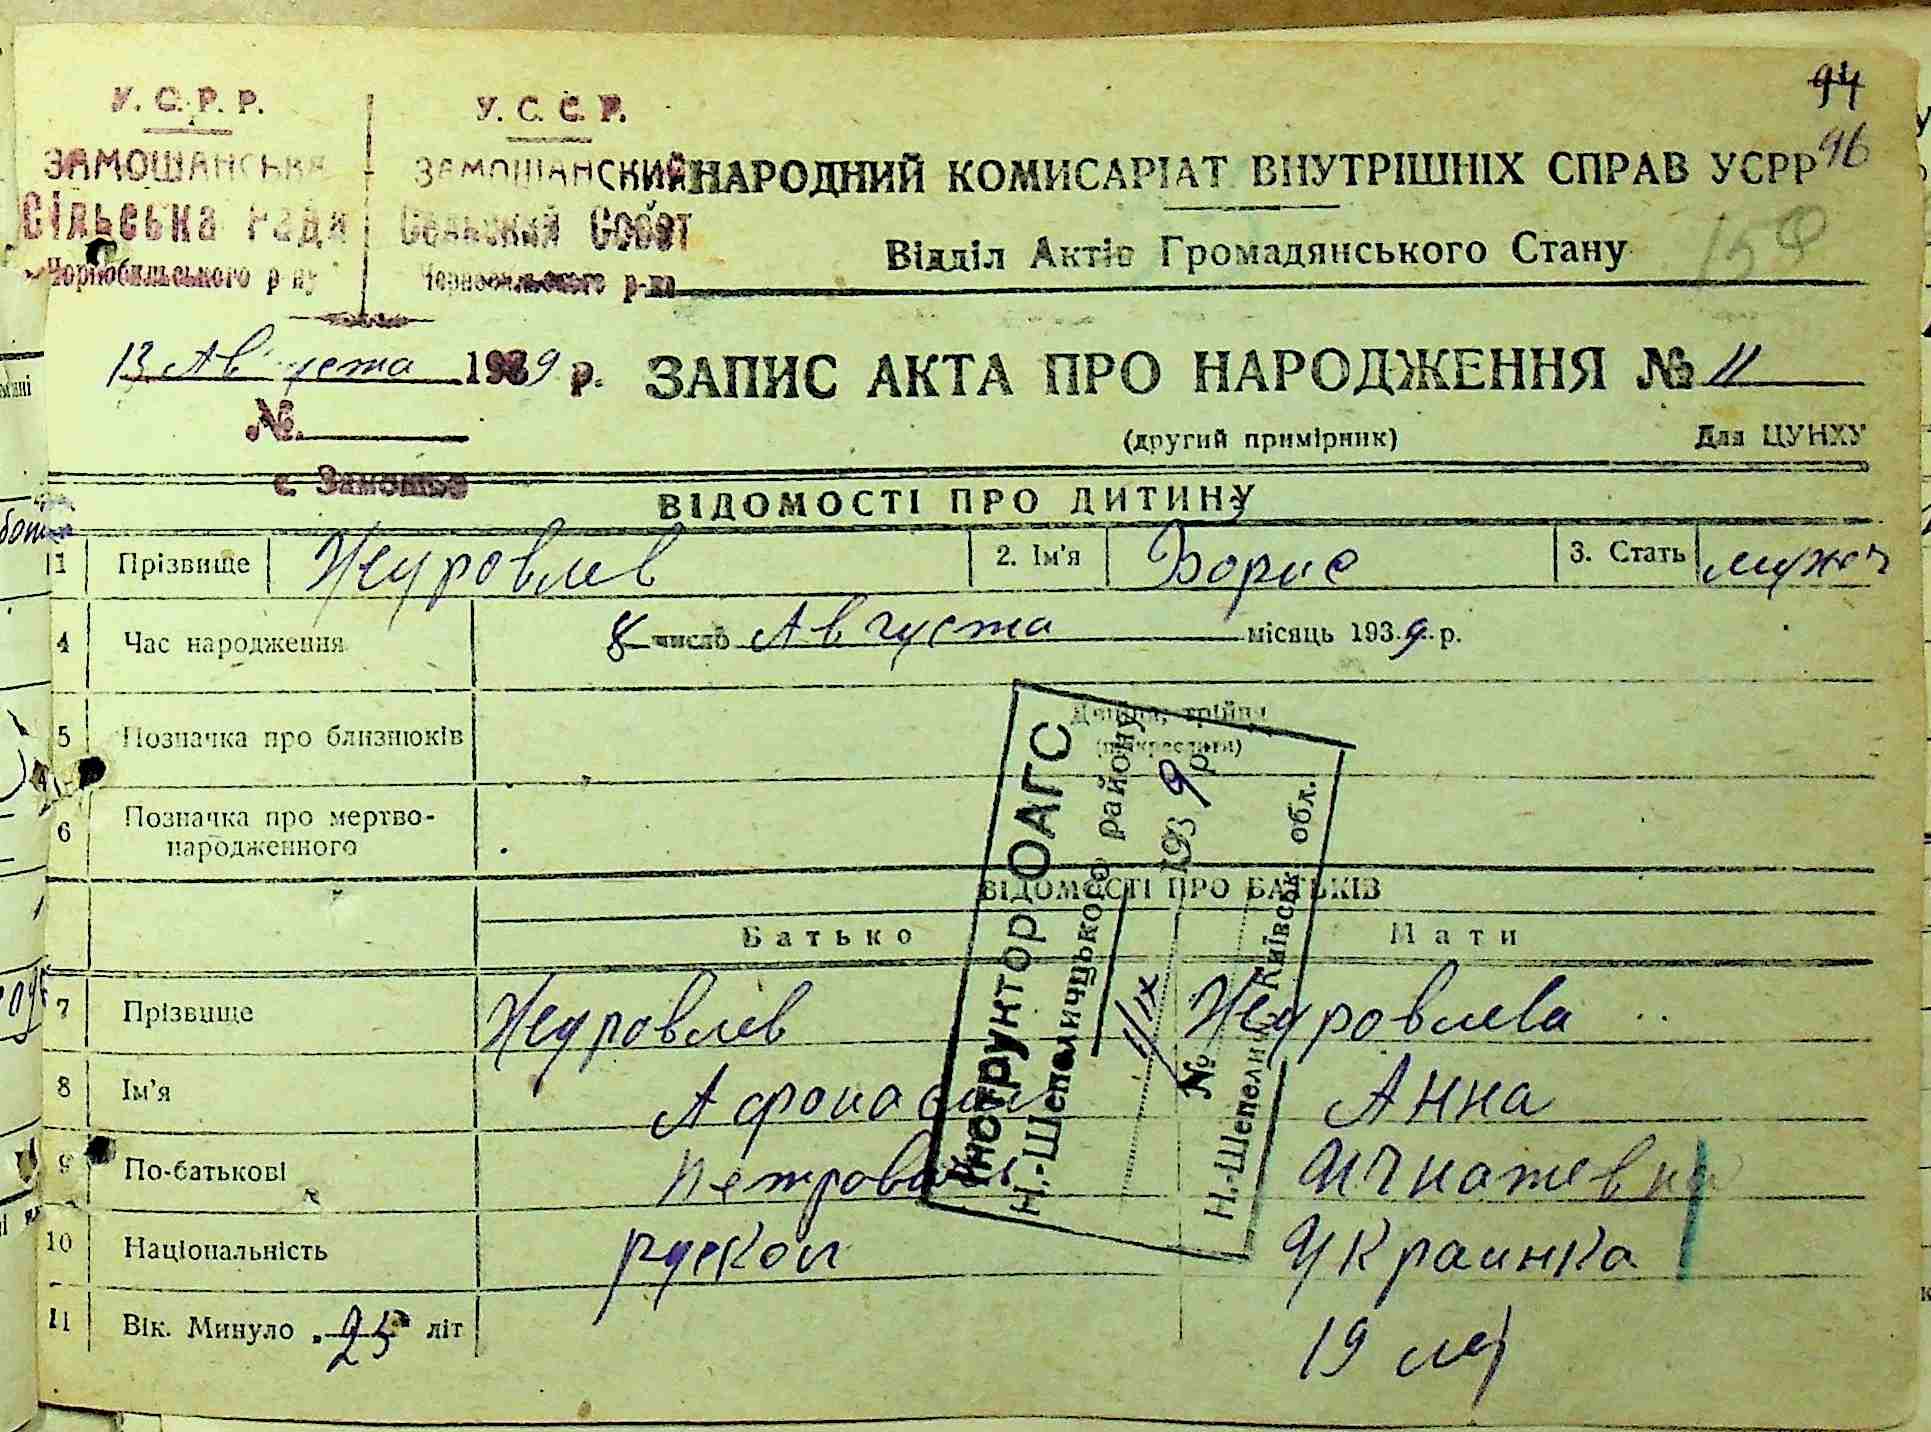 94
96
У. С. Р. Р.
ЗАМОШАНСЬКА
Сільська рада
Чорнобильського р-ну
У. С. С. Р.
ЗАМОШАНСКИЙ
Сельский Совет
Чернобыльского р-на
НАРОДНИЙ КОМИСАРІАТ ВНУТРІШНІХ СПРАВ УСРР
Відділ Актів Громадянського Стану
150
13 Августа 1939 р.
№
с. Замошье
ЗАПИС АКТА ПРО НАРОДЖЕННЯ № 11
(другий примірник) Для ЦУНХУ
ВІДОМОСТІ ПРО ДИТИНУ
1 Прізвище Журовлев 2. Ім'я Борис 3. Стать мужч
4 Час народження 8 число Августа місяць 1939 р.
5 Позначка про близнюків Двійня, трійня
(підкреслити)
6 Позначка про мертво-
народженного
ВІДОМОСТІ ПРО БАТЬКІВ
Батько Мати
7 Прізвище Журовлев Журовлева
8 Ім'я Афонасий Анна
9 По-батькові Петрович Игнатевна
10 Національність руской Украинка
11 Вік. Минуло 25 літ 19 лет
Інструктор ОАГС
Н.-Шепеличцького району
1/IX 1939 р
№
Н.-Шепеличі Київськ обл.